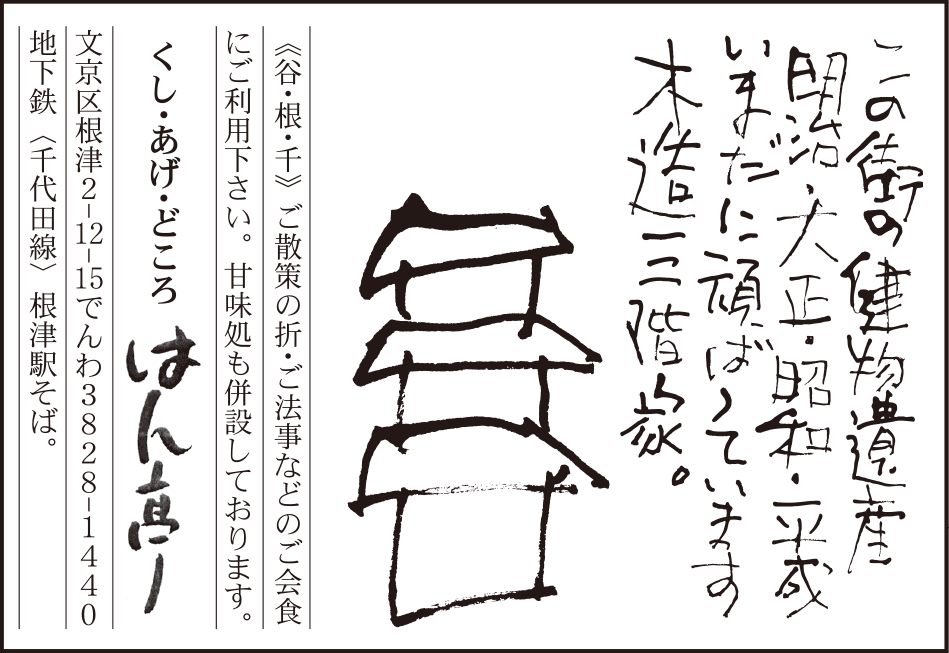 この街の健物遺産
明治・大正・昭和・平成
いまだに頑ばっています
木造三階家。
《谷・根・千》ご散策の折・ご法事などのご会食
にご利用下さい。甘味処も併設しております。
くし・あげ・どころ はん亭
文京区根津2-12-15でんわ3828-1440
地下鉄〈千代田線〉根津駅そば。